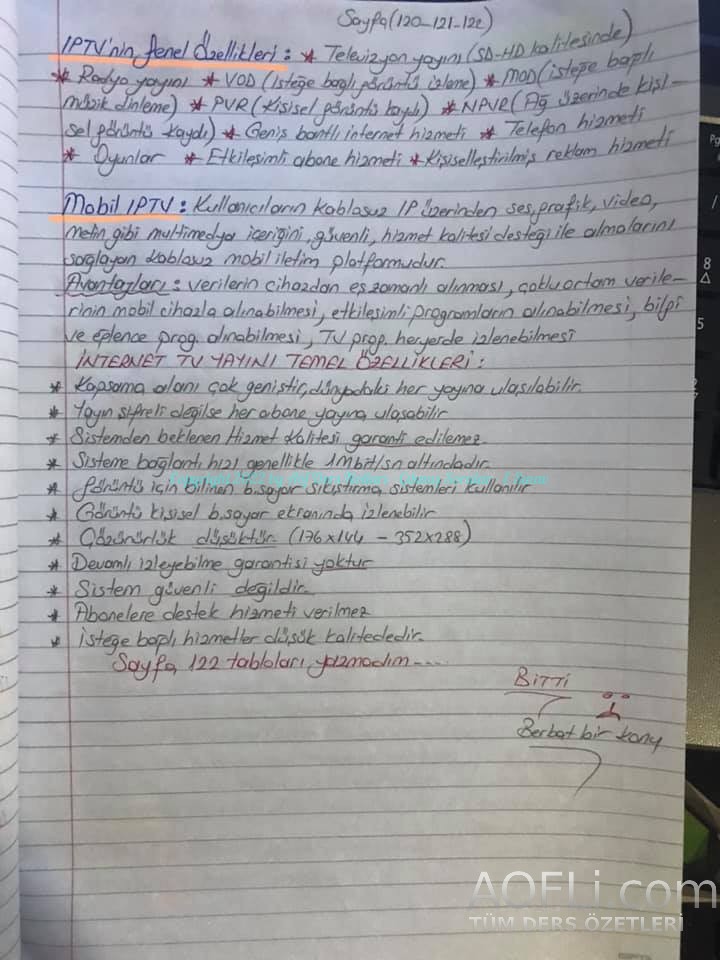 Sayfa (120-121-122)
IPTV'nin Genel Özellikleri : * Televizyon yayını (SD-HD kalitesinde)
* Radyo yayını * VOD (isteğe bağlı görüntü izleme) * MOD (isteğe bağlı
müzik dinleme) * PVR (Kişisel görüntü kaydı) * NPVR (Ağ üzerinde kişi-
sel görüntü kaydı) * Geniş bantlı internet hizmeti * Telefon hizmeti
* Oyunlar * Etkileşimli abone hizmeti * Kişiselleştirilmiş reklam hizmeti
Mobil IPTV : Kullanıcıların kablosuz IP üzerinden ses, grafik, video,
metin gibi multimedya içeriğini, güvenli, hizmet kalitesi desteği ile almalarını
sağlayan kablosuz mobil iletim platformudur.
Avantajları : verilerin cihazdan eş zamanlı alınması, çoklu ortam verile-
rinin mobil cihazla alınabilmesi, etkileşimli programların alınabilmesi, bilgi
ve eğlence prog. alınabilmesi, TV prog. heryerde izlenebilmesi
İNTERNET TV YAYINI TEMEL ÖZELLİKLERİ :
* Kapsama alanı çok geniştir, dünyadaki her yayına ulaşılabilir.
* Yayın şifreli değilse her abone yayına ulaşabilir
* Sistemden beklenen Hizmet Kalitesi garanti edilemez.
* Sisteme bağlantı hızı genellikle 1Mbit/sn altındadır.
* Görüntü için bilinen b.sayar sıkıştırma sistemleri kullanılır
* Görüntü kişisel b.sayar ekranında izlenebilir
* Çözünürlük düşüktür. (176x144 - 352x288)
* Devamlı izleyebilme garantisi yoktur
* Sistem güvenli değildir.
* Abonelere destek hizmeti verilmez
* İsteğe bağlı hizmetler düşük kalitededir.
Sayfa 122 tabloları yazmadım....
BİTTİ
Berbat bir konu
AOFLi.com
TÜM DERS ÖZETLERİ